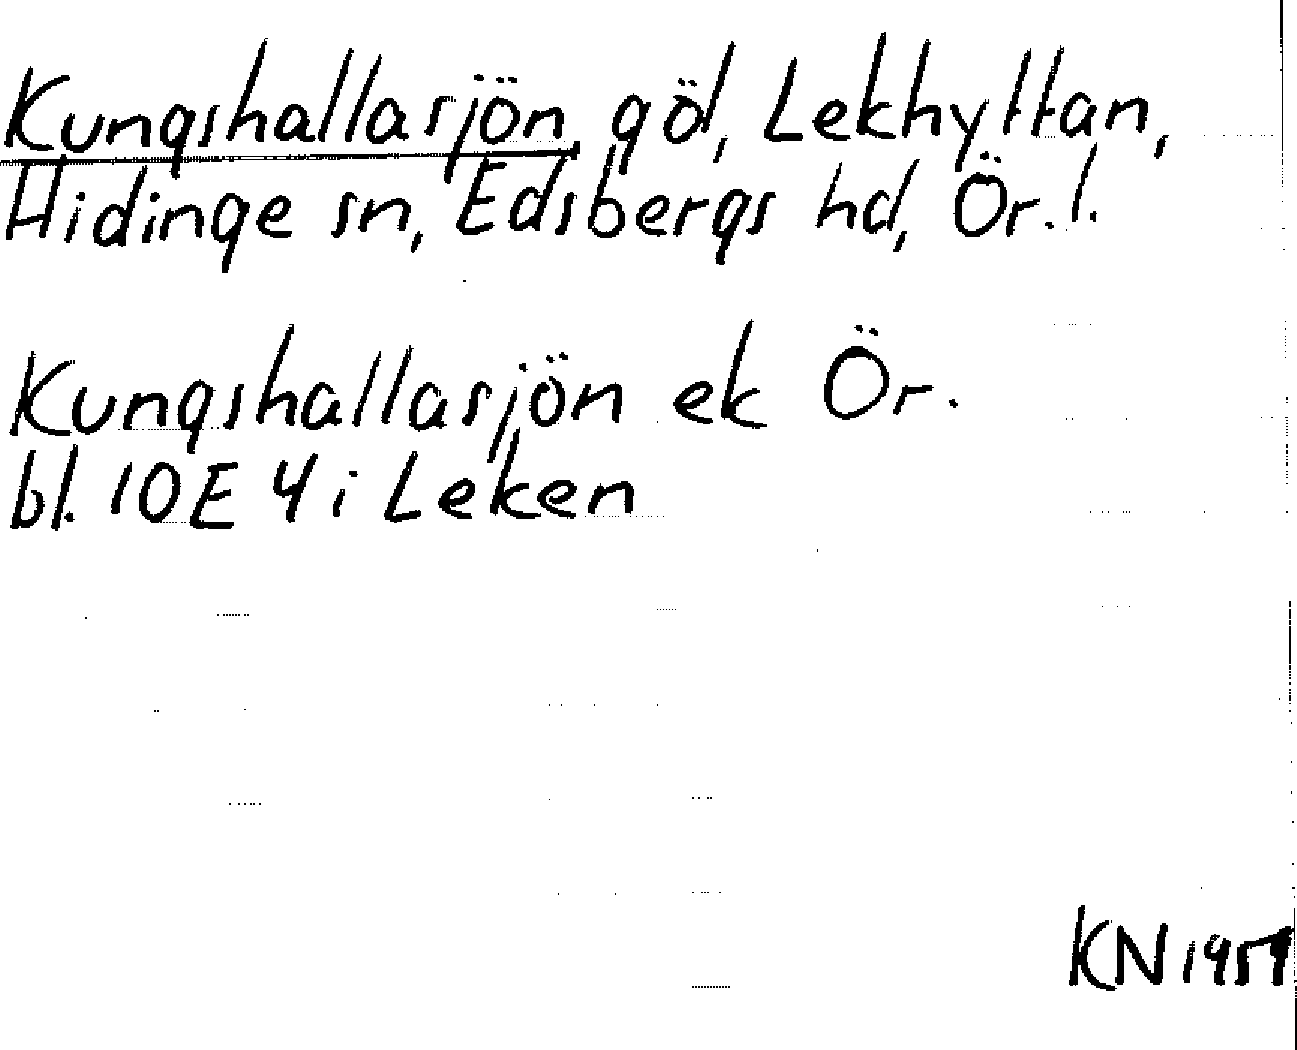 Kungshallasjön, göl, Lekhyttan,
Hidinge sn, Edsbergs hd, Ör. l.
Kungshallasjön ek Ör.
bl. 10E 4i Leken
KN